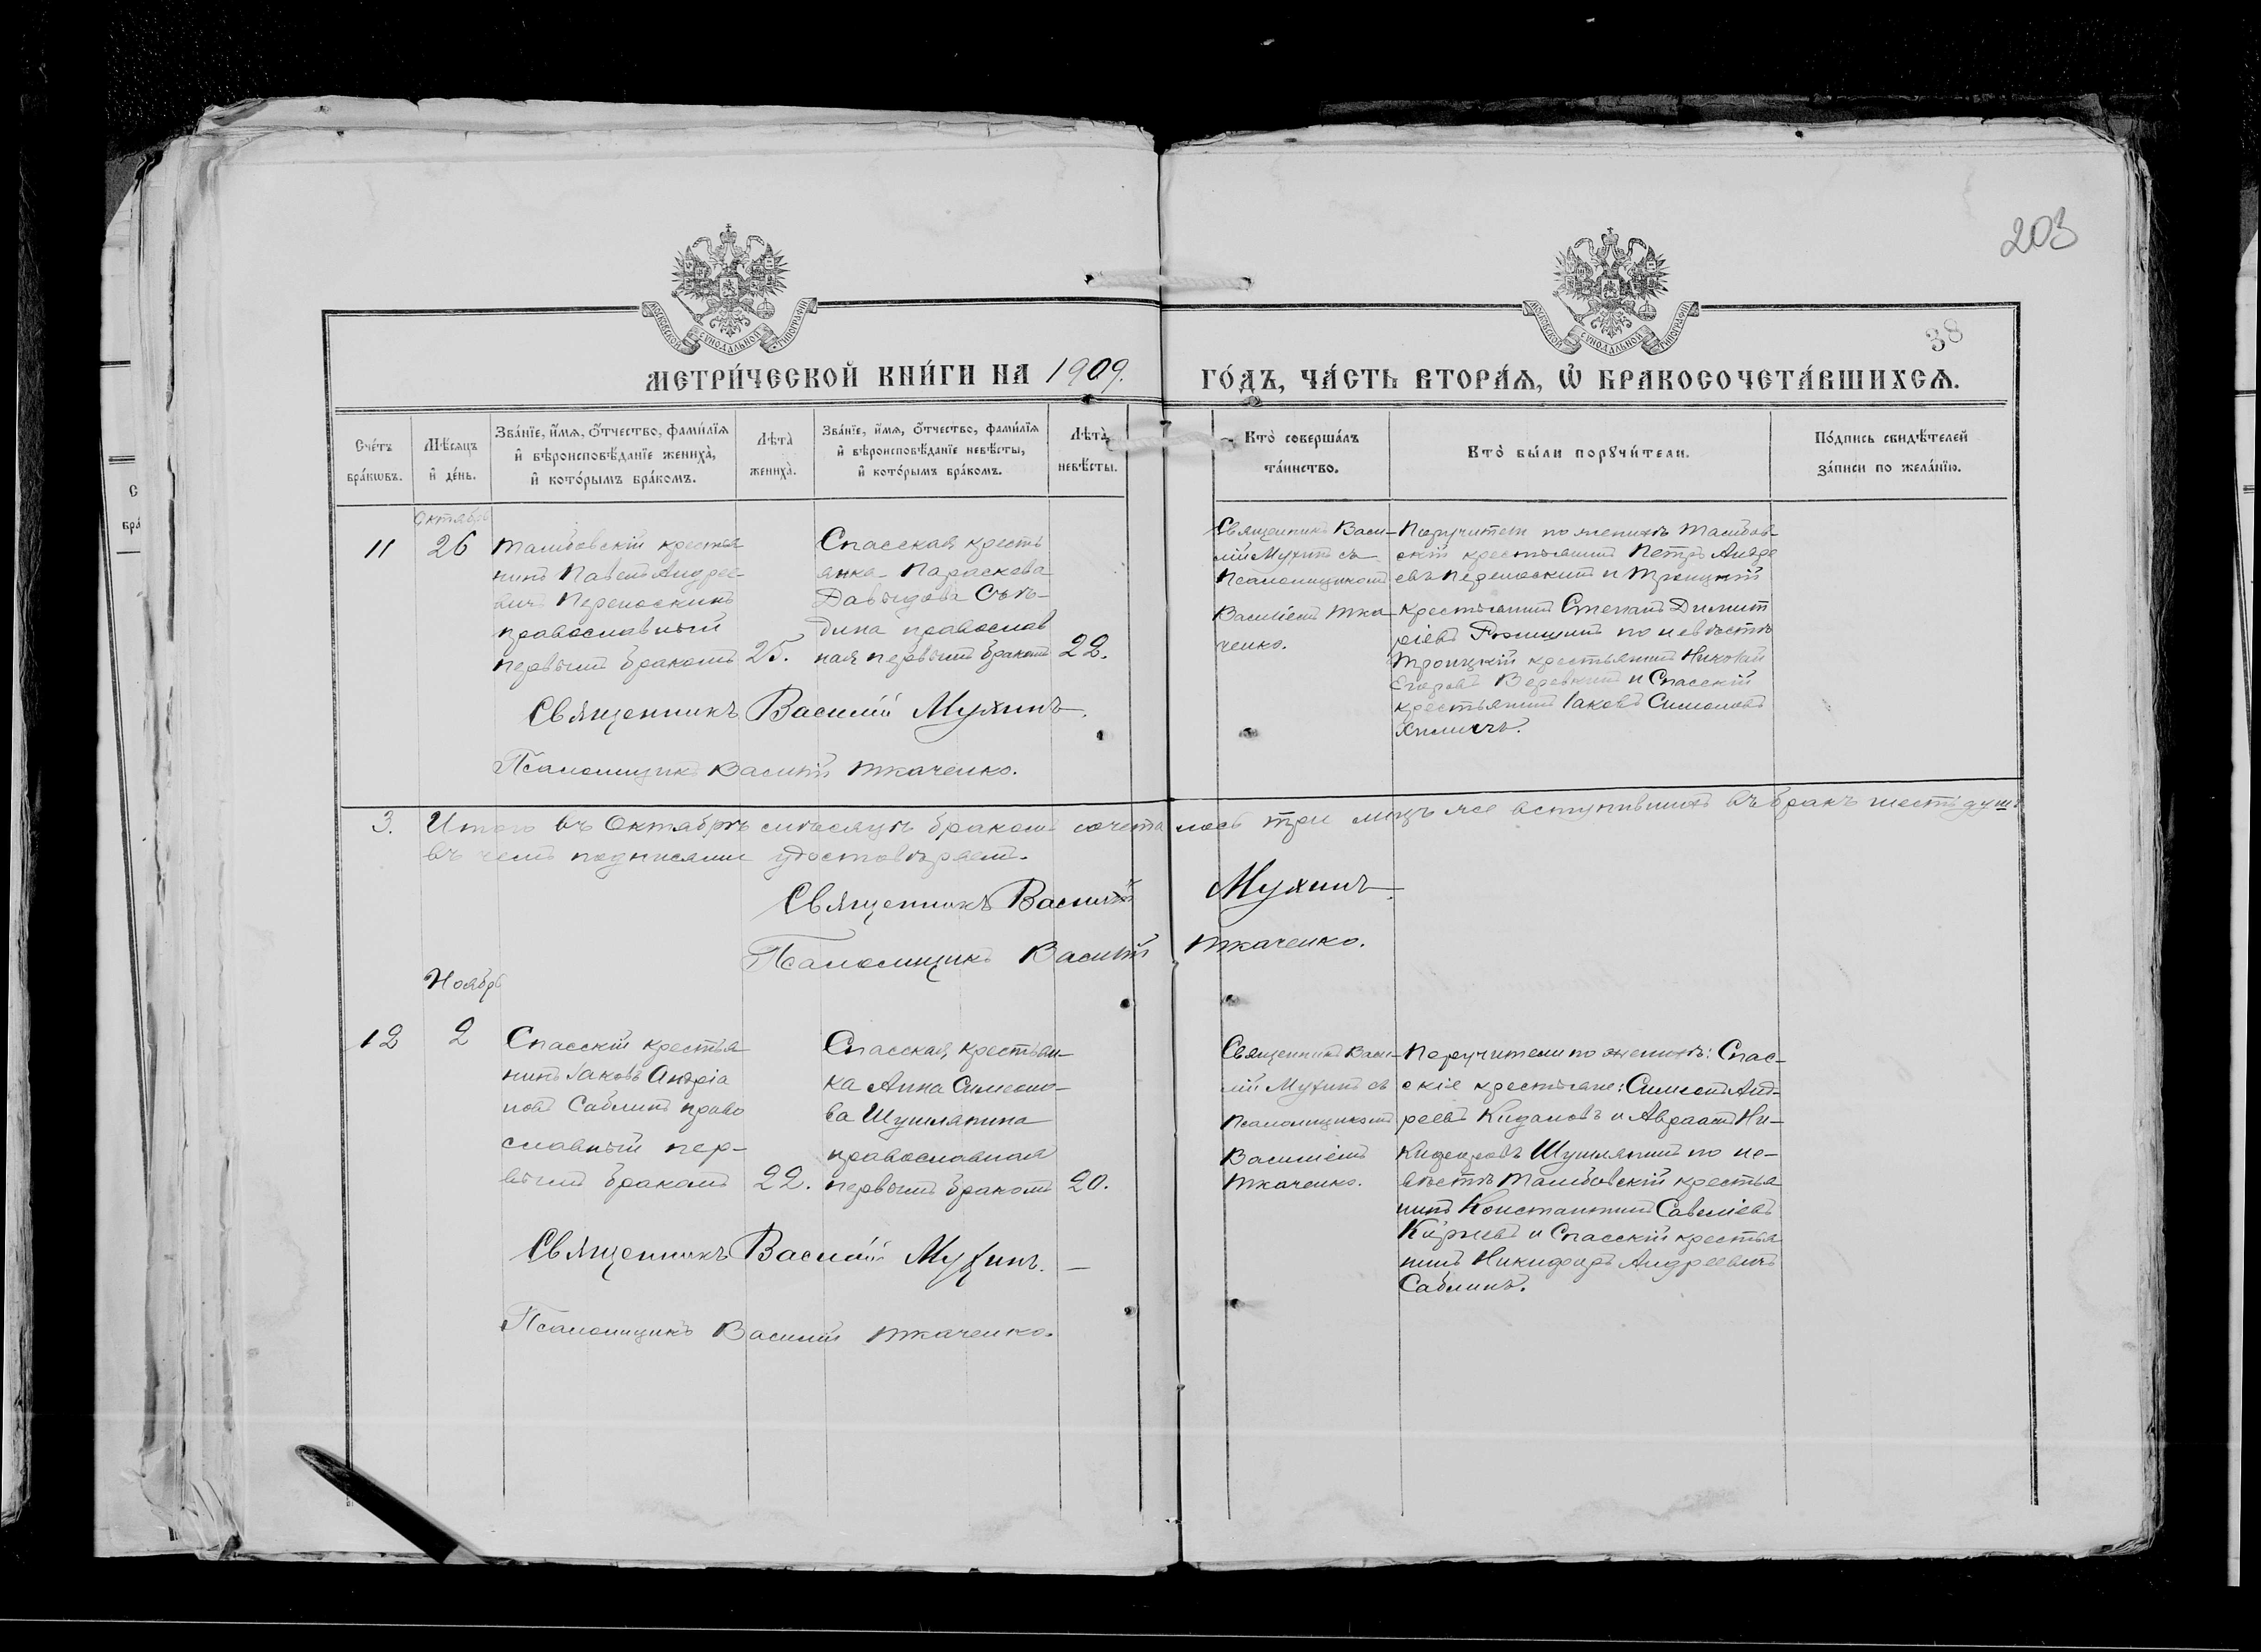 203
38
МОСКОВСКОЙ СѴНОДАЛЬНОЙ ТИПОГРАФІИ
МОСКОВСКОЙ СѴНОДАЛЬНОЙ ТИПОГРАФІИ
МЕТРИ́ЧЕСКОЙ КНИ́ГИ НА 1909. ГО́ДЪ, ЧА́СТЬ ВТОРА́Ѧ, Ѡ҆ БРАКОСОЧЕТА́ВШИХСѦ.
Сче́тъ
бра́кѡвъ.
Мѣ́сѧцъ
и҆ де́нь.
Зва́нїе, и҆́мѧ, ѻ҆́тчество, фами́лїѧ
и҆ вѣроисповѣ́данїе жениха̀,
и҆ кото́рымъ бра́комъ.
Лѣта̀
жениха̀.
Зва́нїе, и҆́мѧ, ѻ҆́тчество, фами́лїѧ
и҆ вѣроисповѣ́данїе невѣ́сты,
и҆ кото́рымъ бра́комъ.
Лѣта̀
невѣ́сты.
Кто̀ соверша́лъ
та́инство.
Кто̀ бы́ли порꙋчи́тели.
По́дпись свидѣ́телей
за́писи по жела́нїю.
Октябрь
11
26
Тамбовскій крестья
нинъ Павелъ Андрее-
вичъ Переноскинъ
православный
первымъ бракомъ
25.
Спасская кресть
янка Параскева
Давыдова
дина православ
ная первымъ бракомъ
22.
Священникъ Васи-
лій Мухинъ съ
Псаломщикомъ
Василіемъ Тка
ченко.
Поручители по женихѣ Тамбов-
скій крестьянинъ Петръ Андре
евъ Переноскинъ и Троицкій
крестьянинъ Степанъ Димит
ріевъ по невѣстѣ
Троицкій крестьянинъ Николай
Егоровъ Веревкинъ и Спасскій
крестьянинъ Іаковъ Симоновъ
Священникъ Василій Мухинъ.
Псаломщикъ Василій Ткаченко.
3. Итого въ Октябрѣ мѣсяцѣ бракомъ сочеталось три лицъ же вступившихъ въ бракъ шесть душъ
въ чемъ подписями удостовѣряемъ.
Священникъ Василій Мухинъ.
Псаломщикъ Василій Ткаченко.
Ноябрь
12
2
Спасскій крестья
нинъ Іаковъ Андріа
новъ Саблинъ право
славный пер-
вымъ бракомъ
22.
Спасская крестьян-
ка Анна Симеоно-
ва Шушляпина
православная
первымъ бракомъ
20.
Священникъ Васи-
лій Мухинъ съ
Псаломщикомъ
Василіемъ
Ткаченко.
Поручители по женихѣ: Спас-
скіе крестьяне: Симеонъ Анд-
реевъ Кидаловъ и Авраамъ Ни-
кифоровъ Шушляпинъ по не-
вѣстѣ Тамбовскій крестья
нинъ Константинъ Савеліевъ
и Спасскій крестья
нинъ Никифоръ Андреевичъ
Саблинъ.
Священникъ Василій Мухинъ.
Псаломщикъ Василій Ткаченко.